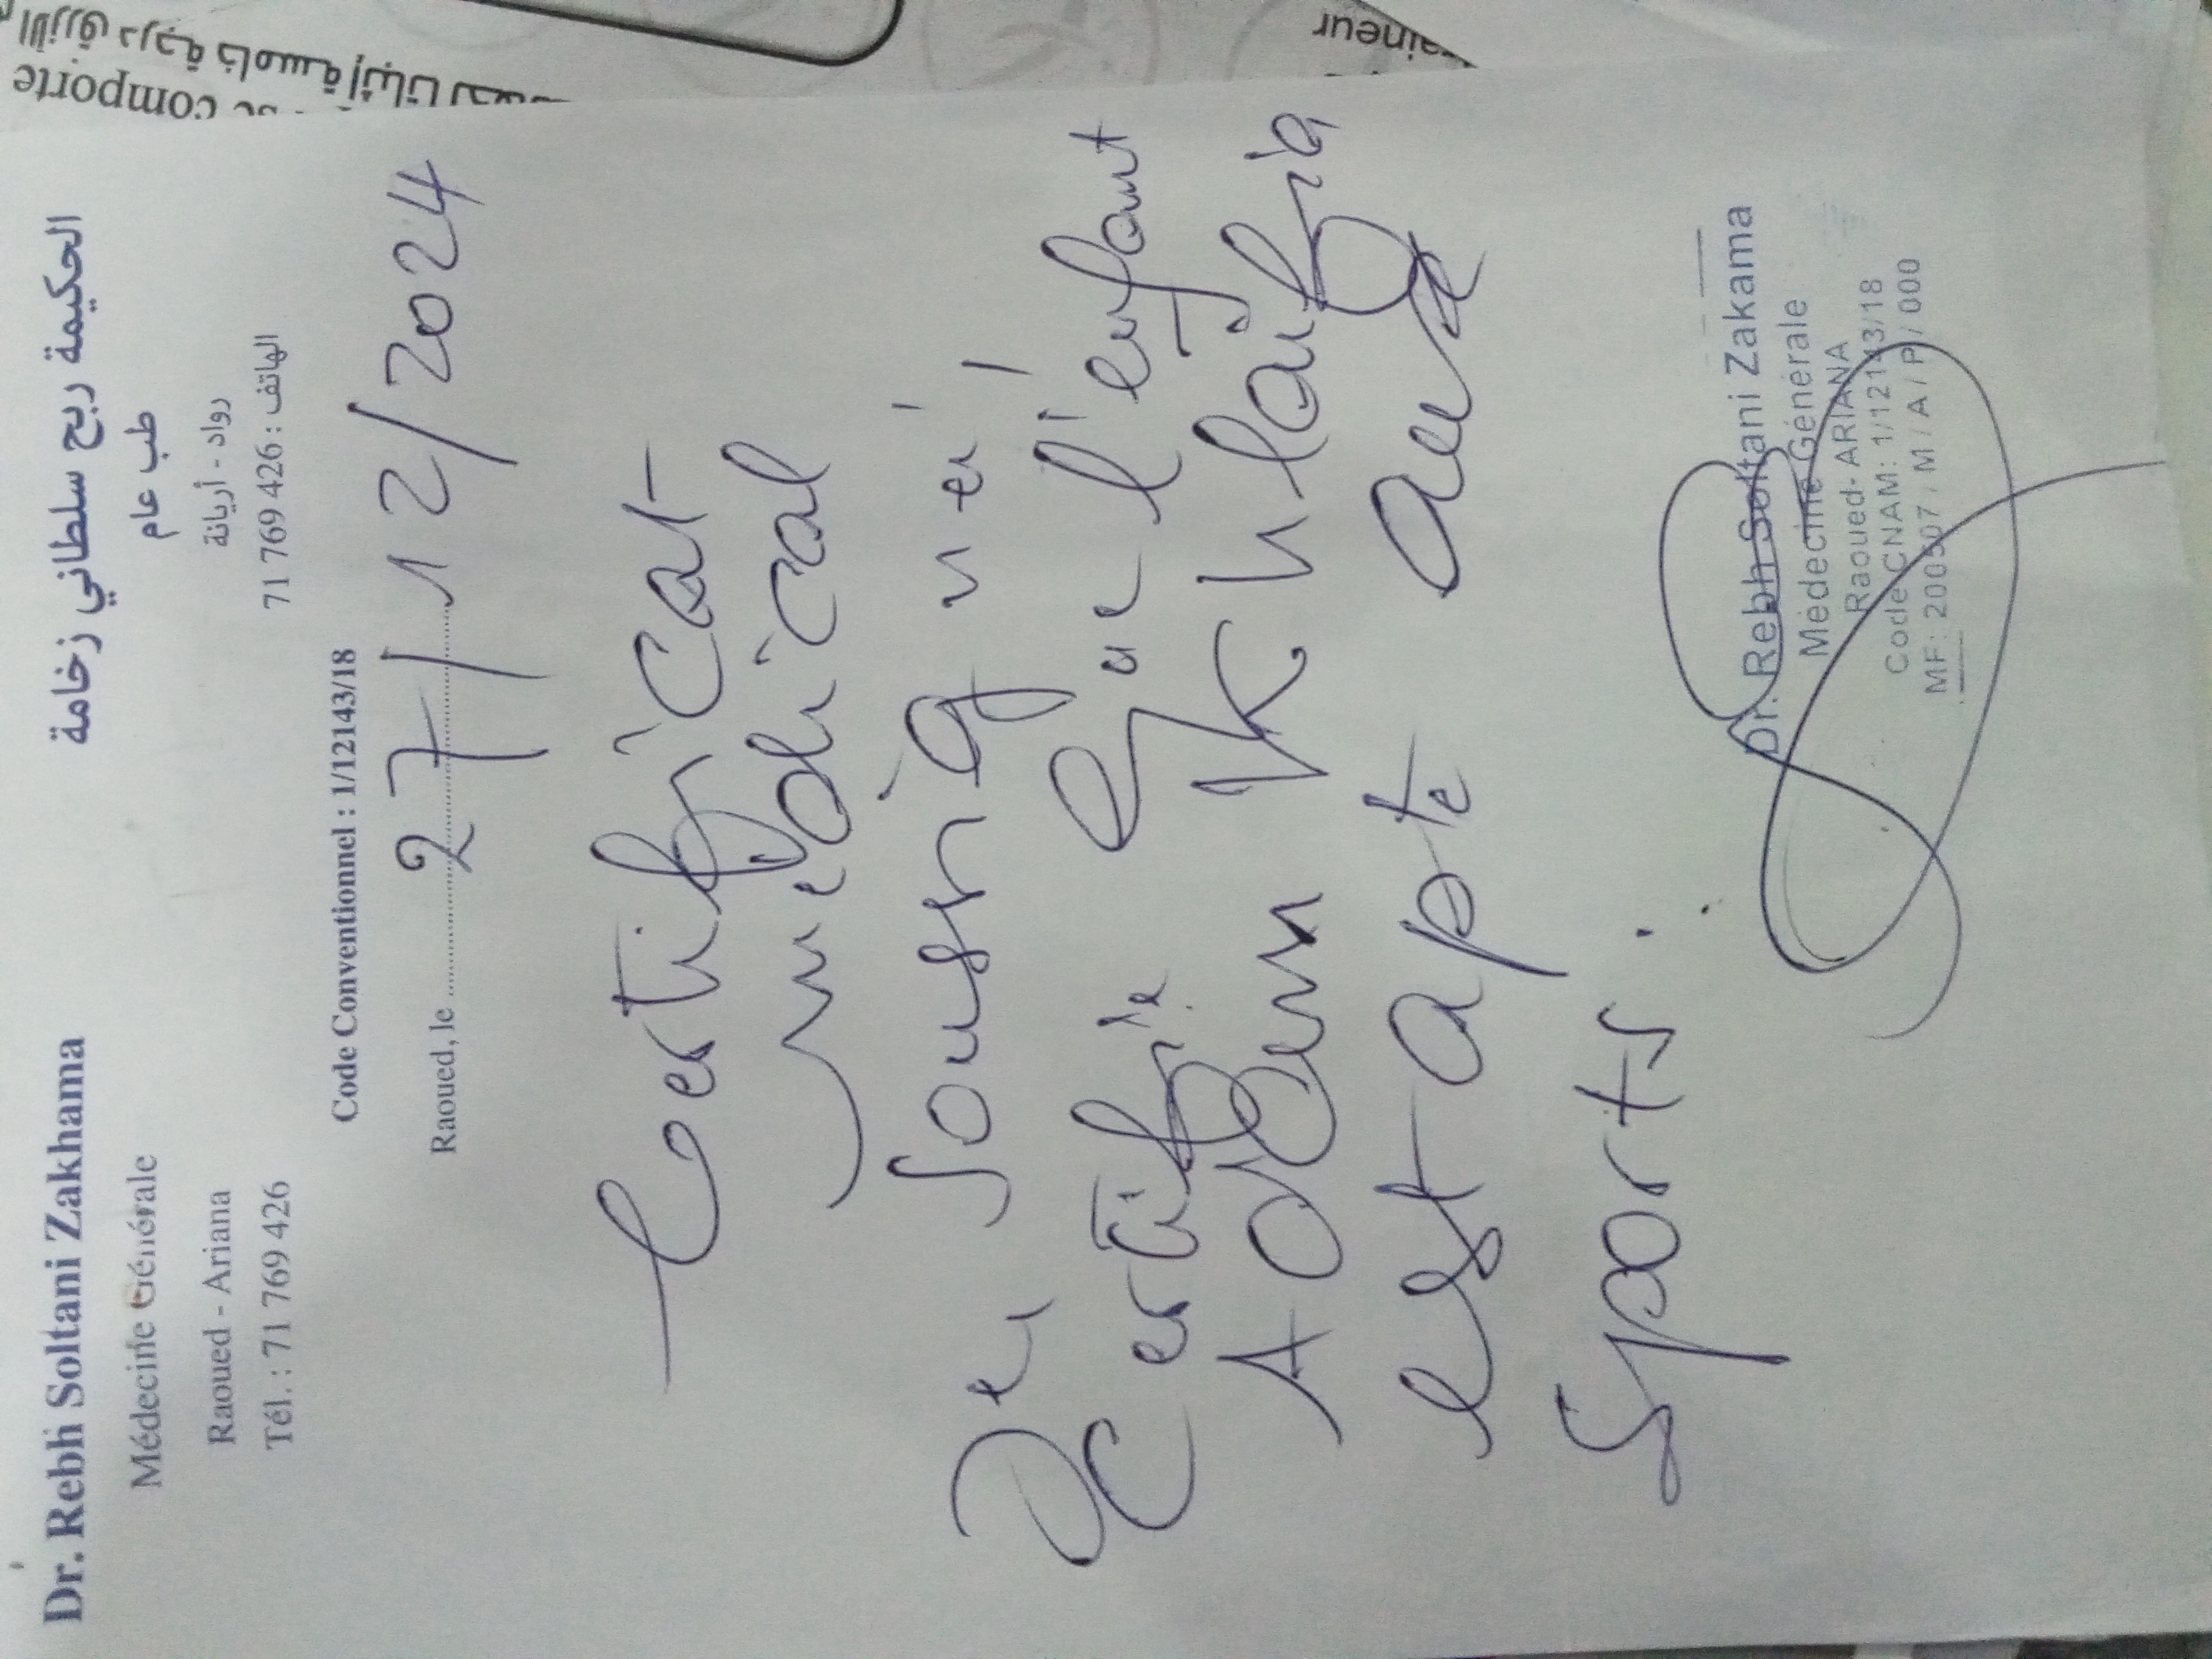 Dr. Rebh Soltani Zakhama
Médecine Générale
Raoued - Ariana
Tél. : 71 769 426
الحكيمة ربح سلطاني زخامة
طب عام
رواد - أريانة
الهاتف : 426 769 71
Code Conventionnel : 1/12143/18
Raoued, le 27/12/2024
Certificat
médical
Je soussigné
certifie que l'enfant
Adem Khlaifia
est apte aux
sports.
Dr. Rebh Soltani Zakama
Médecine Générale
Raoued- ARIANA
Code CNAM: 1/12143/18
MF: 200507 / M / A / P / 000
comporte